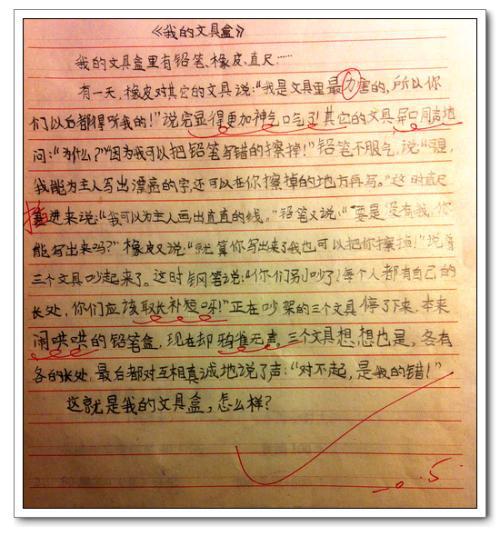 《我的文具盒》
我的文具盒里有铅笔、橡皮、直尺……
有一天,橡皮对其它的文具说:“我是文具里最力害的,所以你
们以后都得听我的!”说完显得更加神气口气了!其它的文具异口同声地
问:“为什么?”“因为我可以把铅笔写错的擦掉!”铅笔不服气,说:“可是,
我能为主人写出漂亮的字,还可以在你擦掉的地方再写。”这时直尺
插进来说:“我可以为主人画出直直的线。”铅笔又说:“要是没有我,你
能写出来吗?”橡皮又说:“就算你写出来了我也可以把你擦掉!”说着
三个文具吵起来了。这时钢笔说:“你们别吵了!每个人都有自己的
长处,你们应该取长补短呀!”正在吵架的三个文具停了下来,本来
闹哄哄的铅笔盒,现在却鸦雀无声,三个文具想想也是,各有
各的长处,最后都对互相真诚地说了声:“对不起,是我的错!”
这就是我的文具盒,怎么样?
-0.5